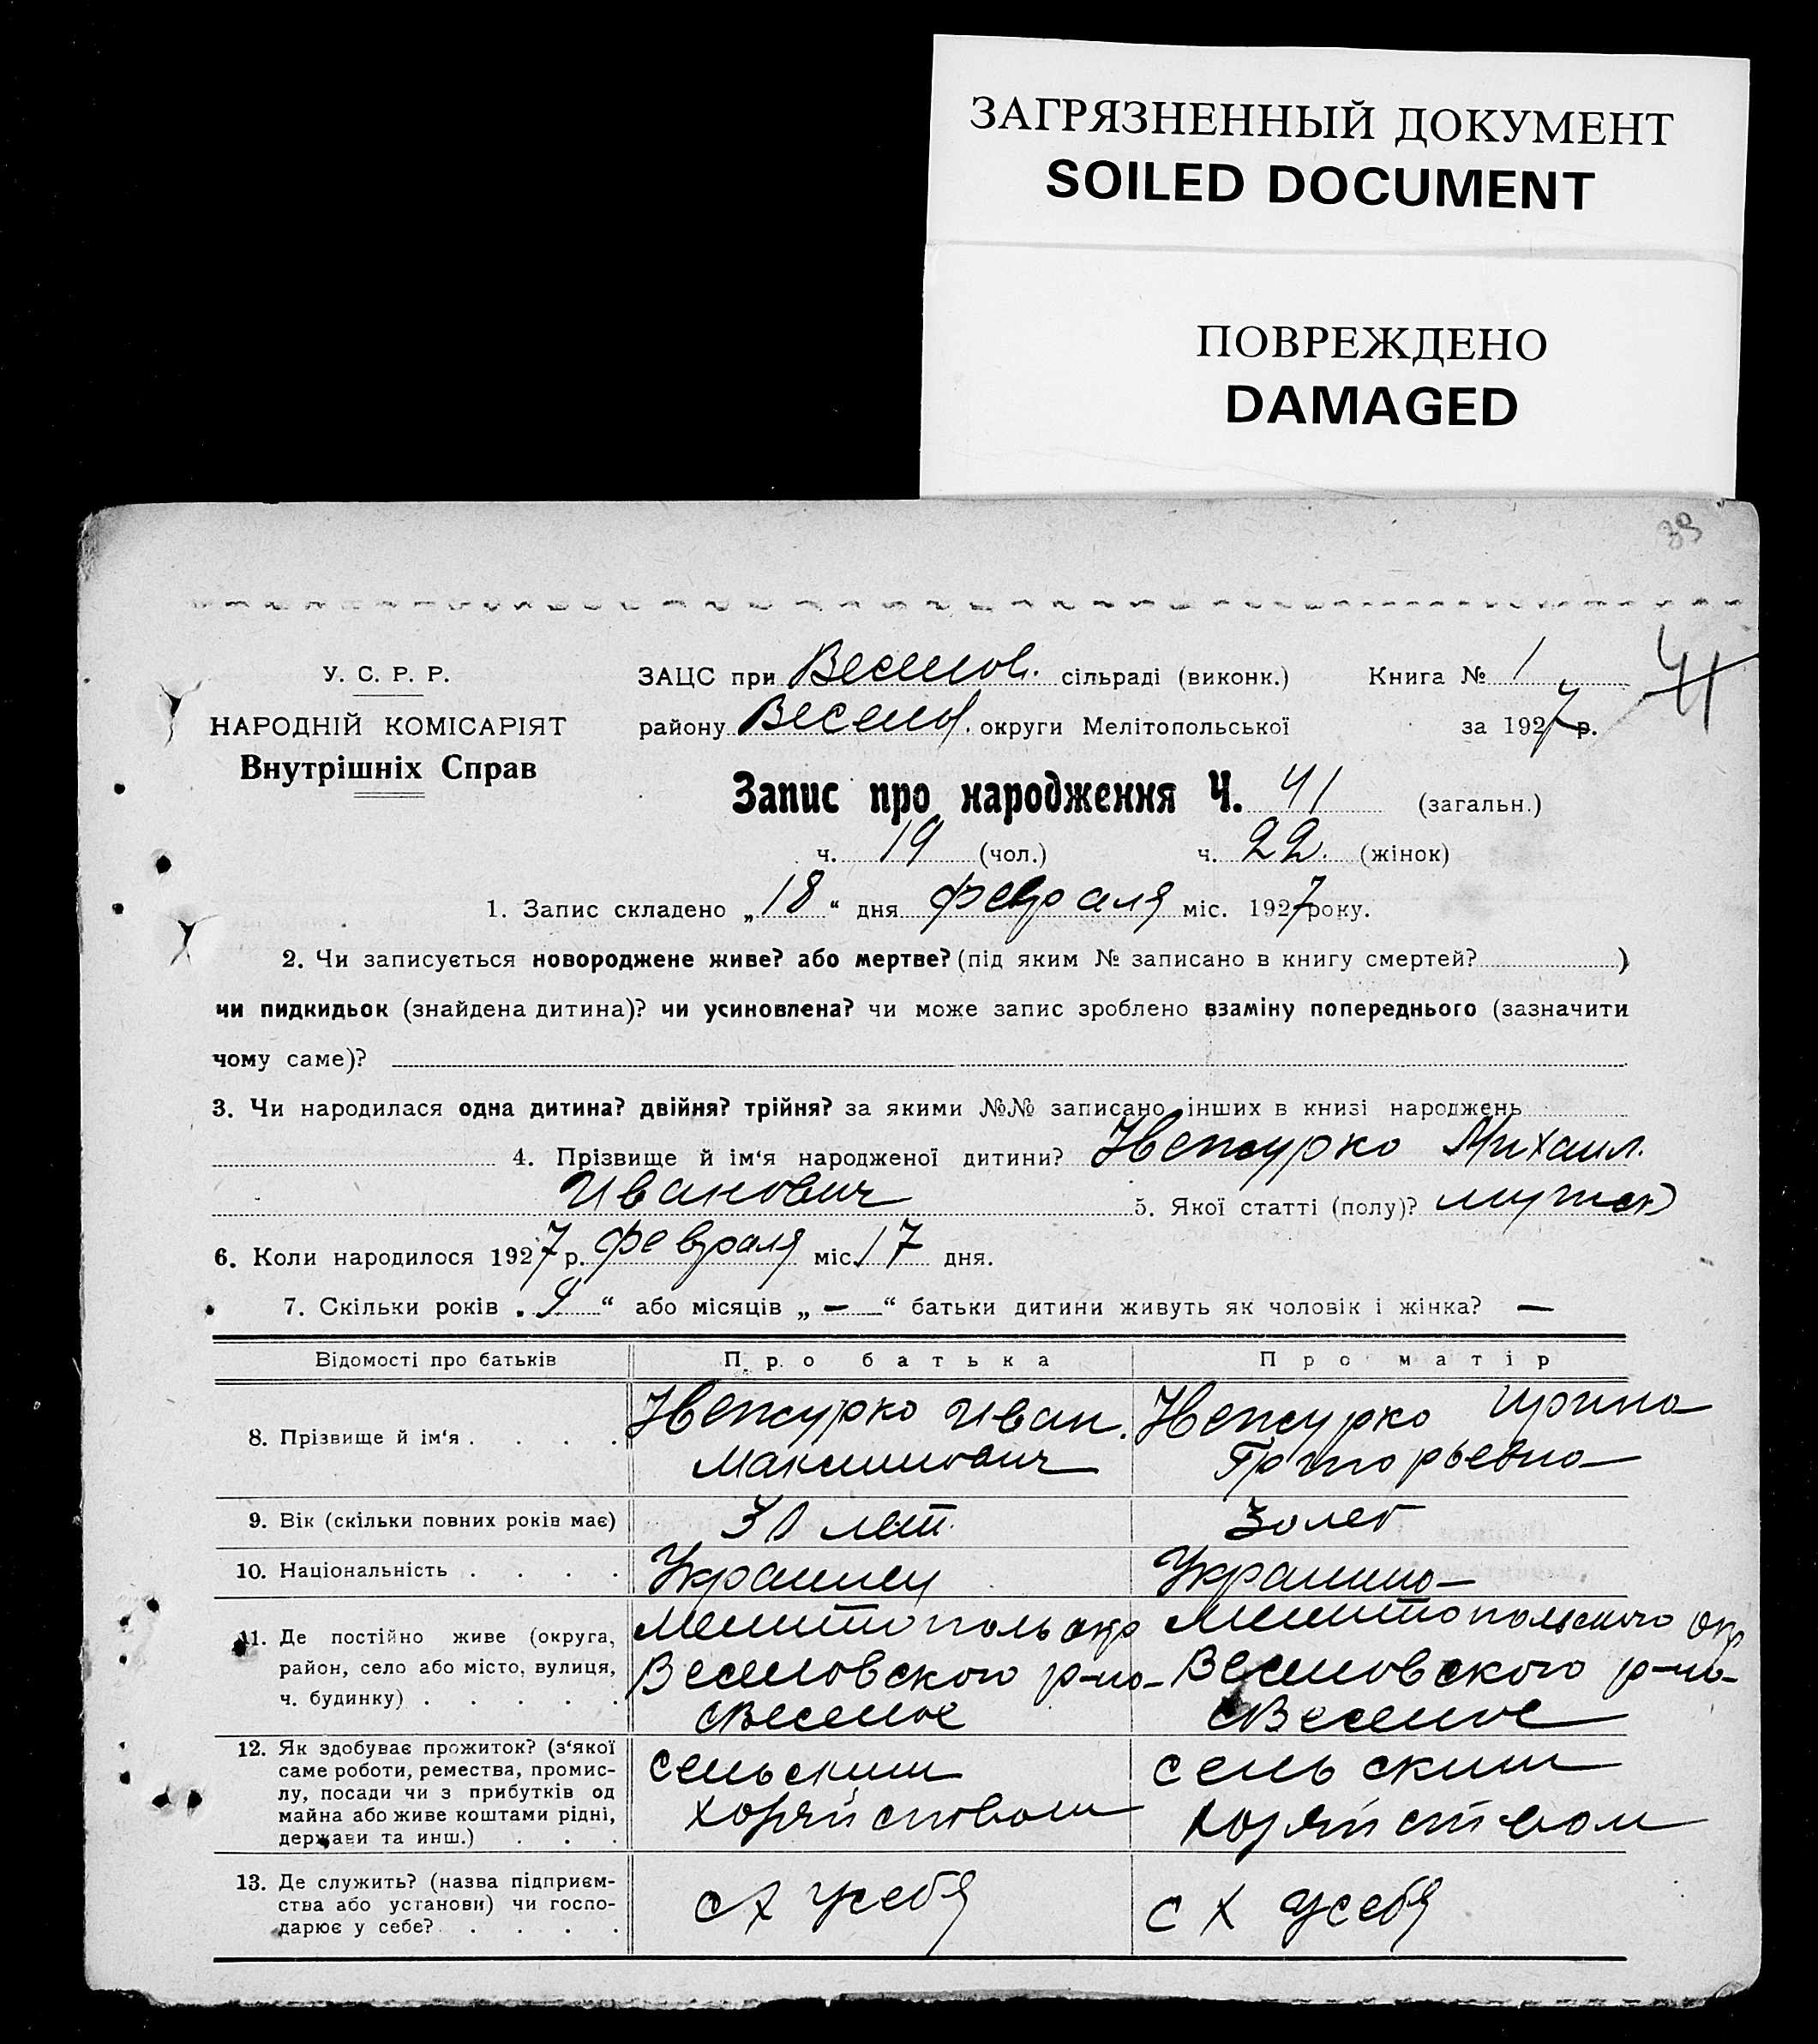 ЗАГРЯЗНЕННЫЙ ДОКУМЕНТ
SOILED DOCUMENT
ПОВРЕЖДЕНО
DAMAGED
39
У. С. Р. Р.
НАРОДНІЙ КОМІСАРІЯТ
Внутрішніх Справ
ЗАЦС при Веселов. сільраді (виконк.) Книга № 1
41
району Весел. округи Мелітопольської за 1927 р.
Запис про народження Ч. 41 (загальн.)
ч. 19 (чол.) ч. 22. (жінок)
1. Запис складено „18“ дня февраля міс. 1927 року.
2. Чи записується новороджене живе? або мертве? (під яким № записано в книгу смертей? )
чи пидкидьок (знайдена дитина)? чи усиновлена? чи може запис зроблено взаміну попереднього (зазначити
чому саме)?
3. Чи народилася одна дитина? двійня? трійня? за якими №№ записано інших в книзі народжень
4. Прізвище й ім‘я народженої дитини? Нежурко Михаил.
Иванович 5. Якої статті (полу)? мужск
6. Коли народилося 1927 р. февраля міс. 17 дня.
7. Скільки років „9“ або місяців „—“ батьки дитини живуть як чоловік і жінка? —
Відомості про батьків Про батька Про матір
8. Прізвище й ім‘я . . . . Нежурко Иван. Нежурко Ирина
Максимович Григорьевна
9. Вік (скільки повних років має) 30 лет. 30 лет
10. Національність . . . . Украинец Украинка
11. Де постійно живе (округа, Мелитополь окр Мелитопольского окр
район, село або місто, вулиця, Веселовского р-на Веселовского р-на
ч. будинку) . . . . . с Веселое с Веселое
12. Як здобуває прожиток? (з‘якої
саме роботи, ремества, промис- сельским сельским
лу, посади чи з прибутків од
майна або живе коштами рідні, хозяйством хозяйством
держави та инш.) . . .
13. Де служить? (назва підприєм-
ства або установи) чи госпо- с х у себя с х у себя
дарює у себе? . . . .